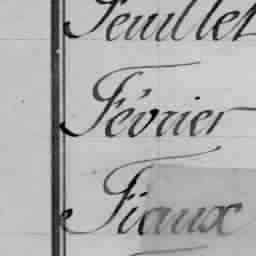 Feuillet
Février
Fiaux